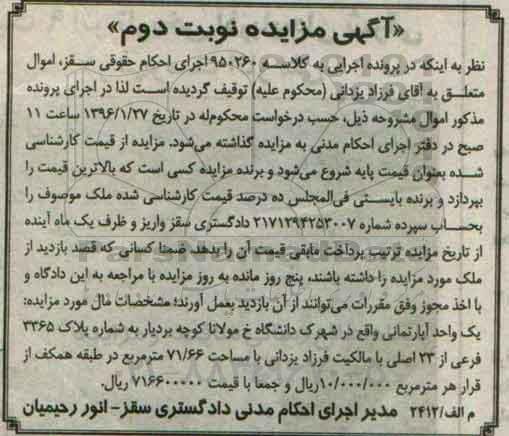 «آگهی مزایده نوبت دوم»
نظر به اینکه در پرونده اجرایی به کلاسه ۹۵۰۲۶۰ اجرای احکام حقوقی سقز، اموال
متعلق به آقای فرزاد یزدانی (محکوم علیه) توقیف گردیده است لذا در اجرای پرونده
مذکور اموال مشروحه ذیل، حسب درخواست محکوم‌له در تاریخ ۱۳۹۶/۱/۲۷ ساعت ۱۱
صبح در دفتر اجرای احکام مدنی به مزایده گذاشته می‌شود. مزایده از قیمت کارشناسی
شده بعنوان قیمت پایه شروع می‌شود و برنده مزایده کسی است که بالاترین قیمت را
بپردازد و برنده بایستی فی‌المجلس ده درصد قیمت کارشناسی شده ملک موصوف را
بحساب سپرده شماره ۲۱۷۱۲۹۴۲۵۳۰۰۷ دادگستری سقز واریز و ظرف یک ماه آینده
از تاریخ مزایده ترتیب پرداخت مابقی قیمت آن را بدهد ضمنا کسانی که قصد بازدید از
ملک مورد مزایده را داشته باشند، پنج روز مانده به روز مزایده با مراجعه به این دادگاه و
با اخذ مجوز وفق مقررات می‌توانند از آن بازدید بعمل آورند؛ مشخصات مال مورد مزایده:
یک واحد آپارتمانی واقع در شهرک دانشگاه خ مولانا کوچه بردیار به شماره پلاک ۳۳۶۵
فرعی از ۲۳ اصلی با مالکیت فرزاد یزدانی با مساحت ۷۱/۶۶ مترمربع در طبقه همکف از
قرار هر مترمربع ۱۰/۰۰۰/۰۰۰ ریال و جمعا با قیمت ۷۱۶۶۰۰۰۰۰ ریال.
م الف/۲۴۱۲ مدیر اجرای احکام مدنی دادگستری سقز- انور رحیمیان